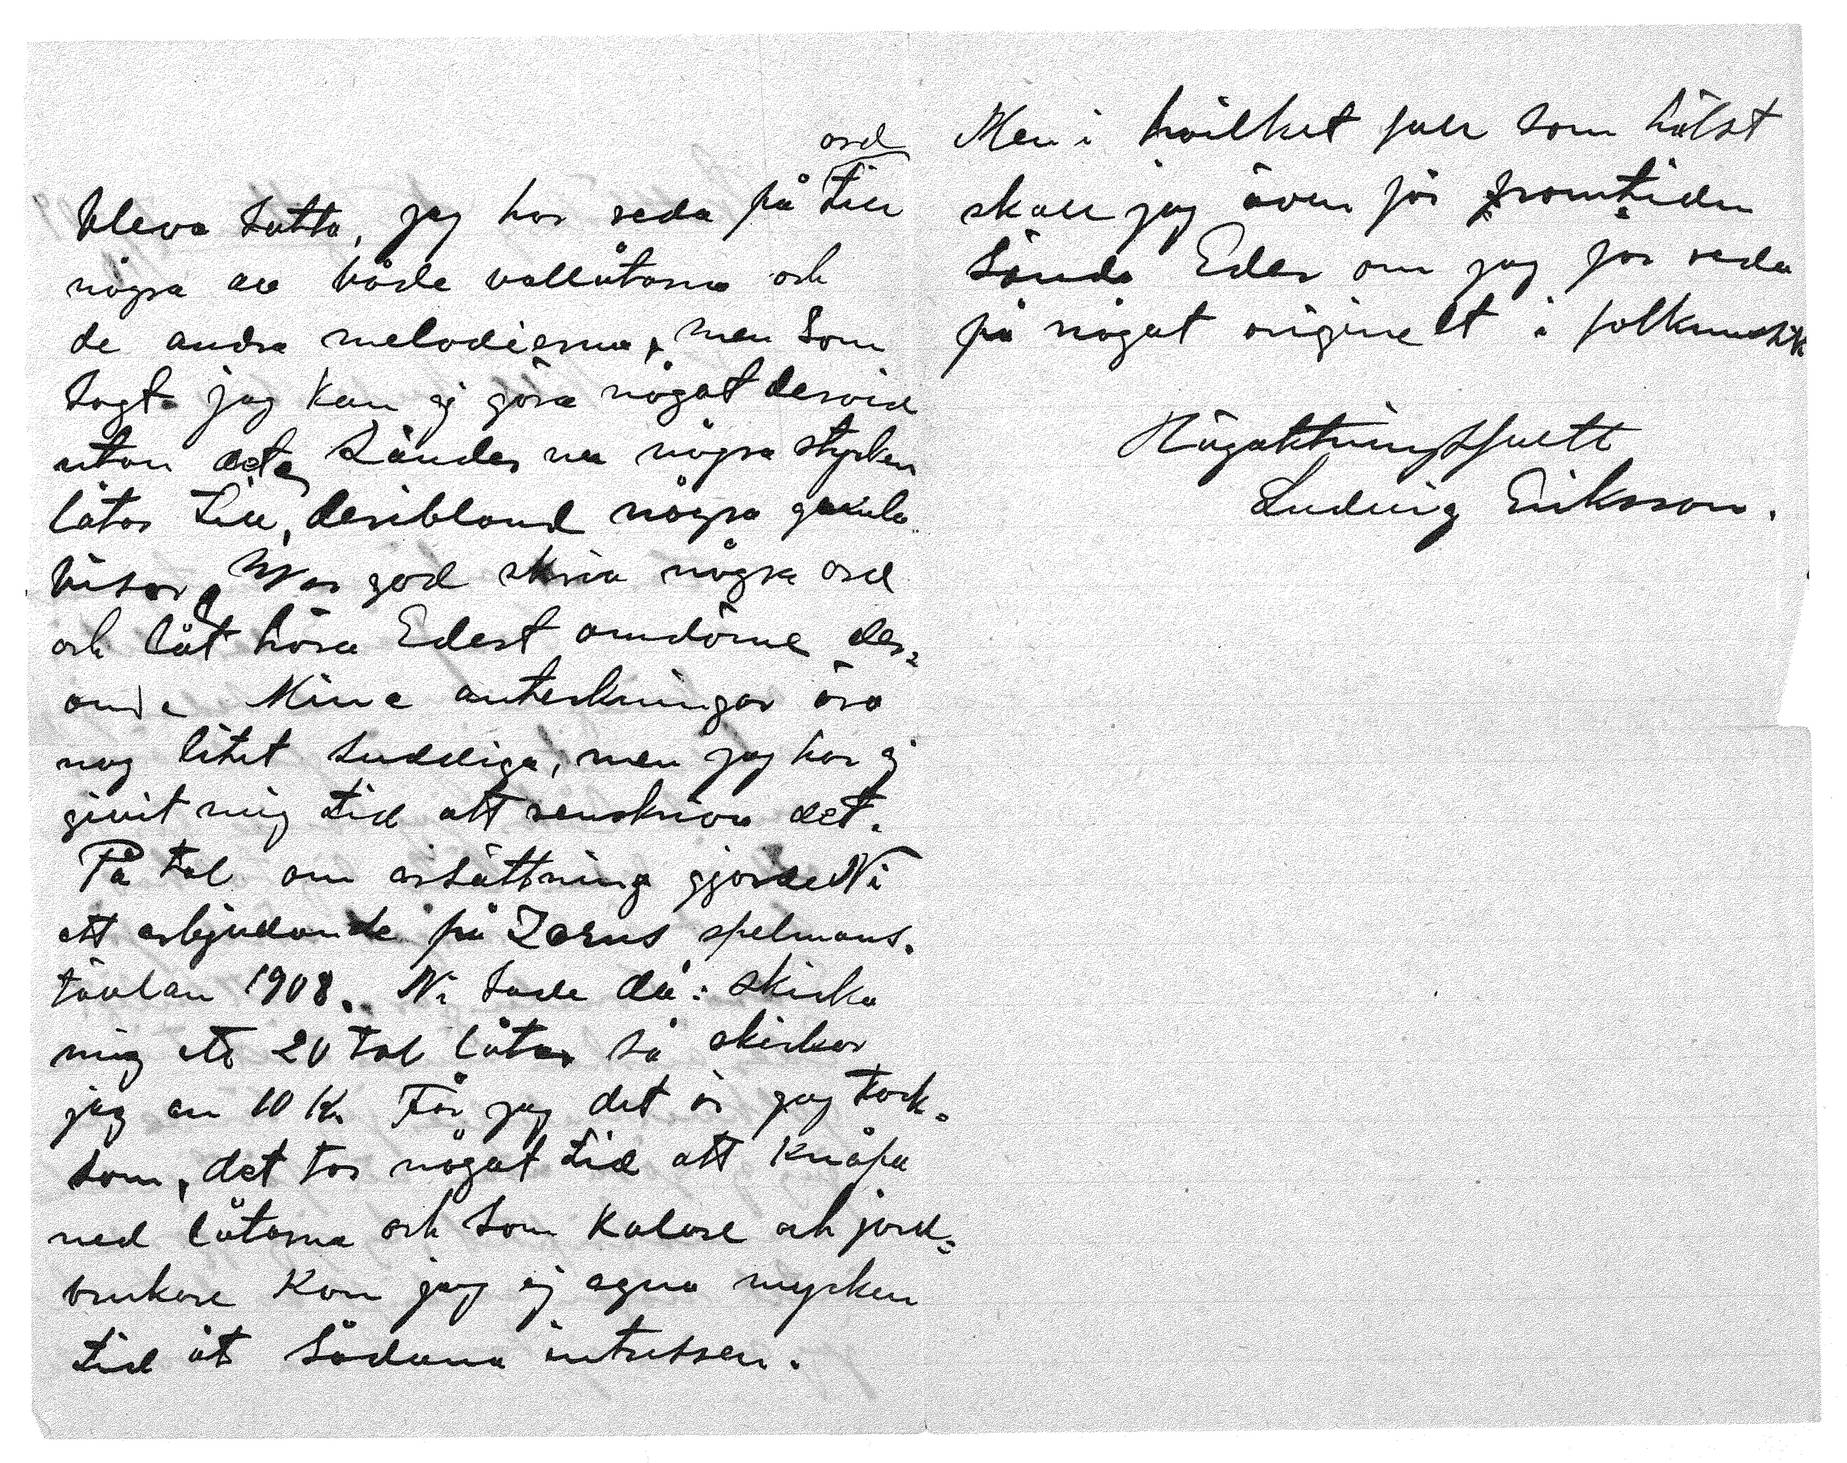 ord
bleva satta, jag har reda på till
några av både vallåtarna och
de andra melodierna, men Som
Sagt jag kan ej göra något dervid
utan det Sändes nu några stycken
låtar till, deribland några gamla
visor, Var god skriv några ord
och låt höra Edert omdöme der=
om. Mina anteckningar äro
nog litet suddiga, men jag har ej
givit mig tid att renskriva det.
På tal om ersättning gjorde Ni
ett erbjudande på Zorns spelmans.
tävlan 1908. Ni sade då: skicka
mig ett 20 tal låtar så skickar
jag en 10 Kr Får jag det är jag tack=
sam, det tar något tid att knåpa
ned låtarna och som Kolare och jord=
brukare Kan jag ej egna mycken
tid åt sådana intressen.
Men i hvilket fall som hälst
skall jag även för framtiden
Sända Eder om jag får reda
på något originelt i folkmusik
Högaktningsfullt
Ludvig Eriksson.